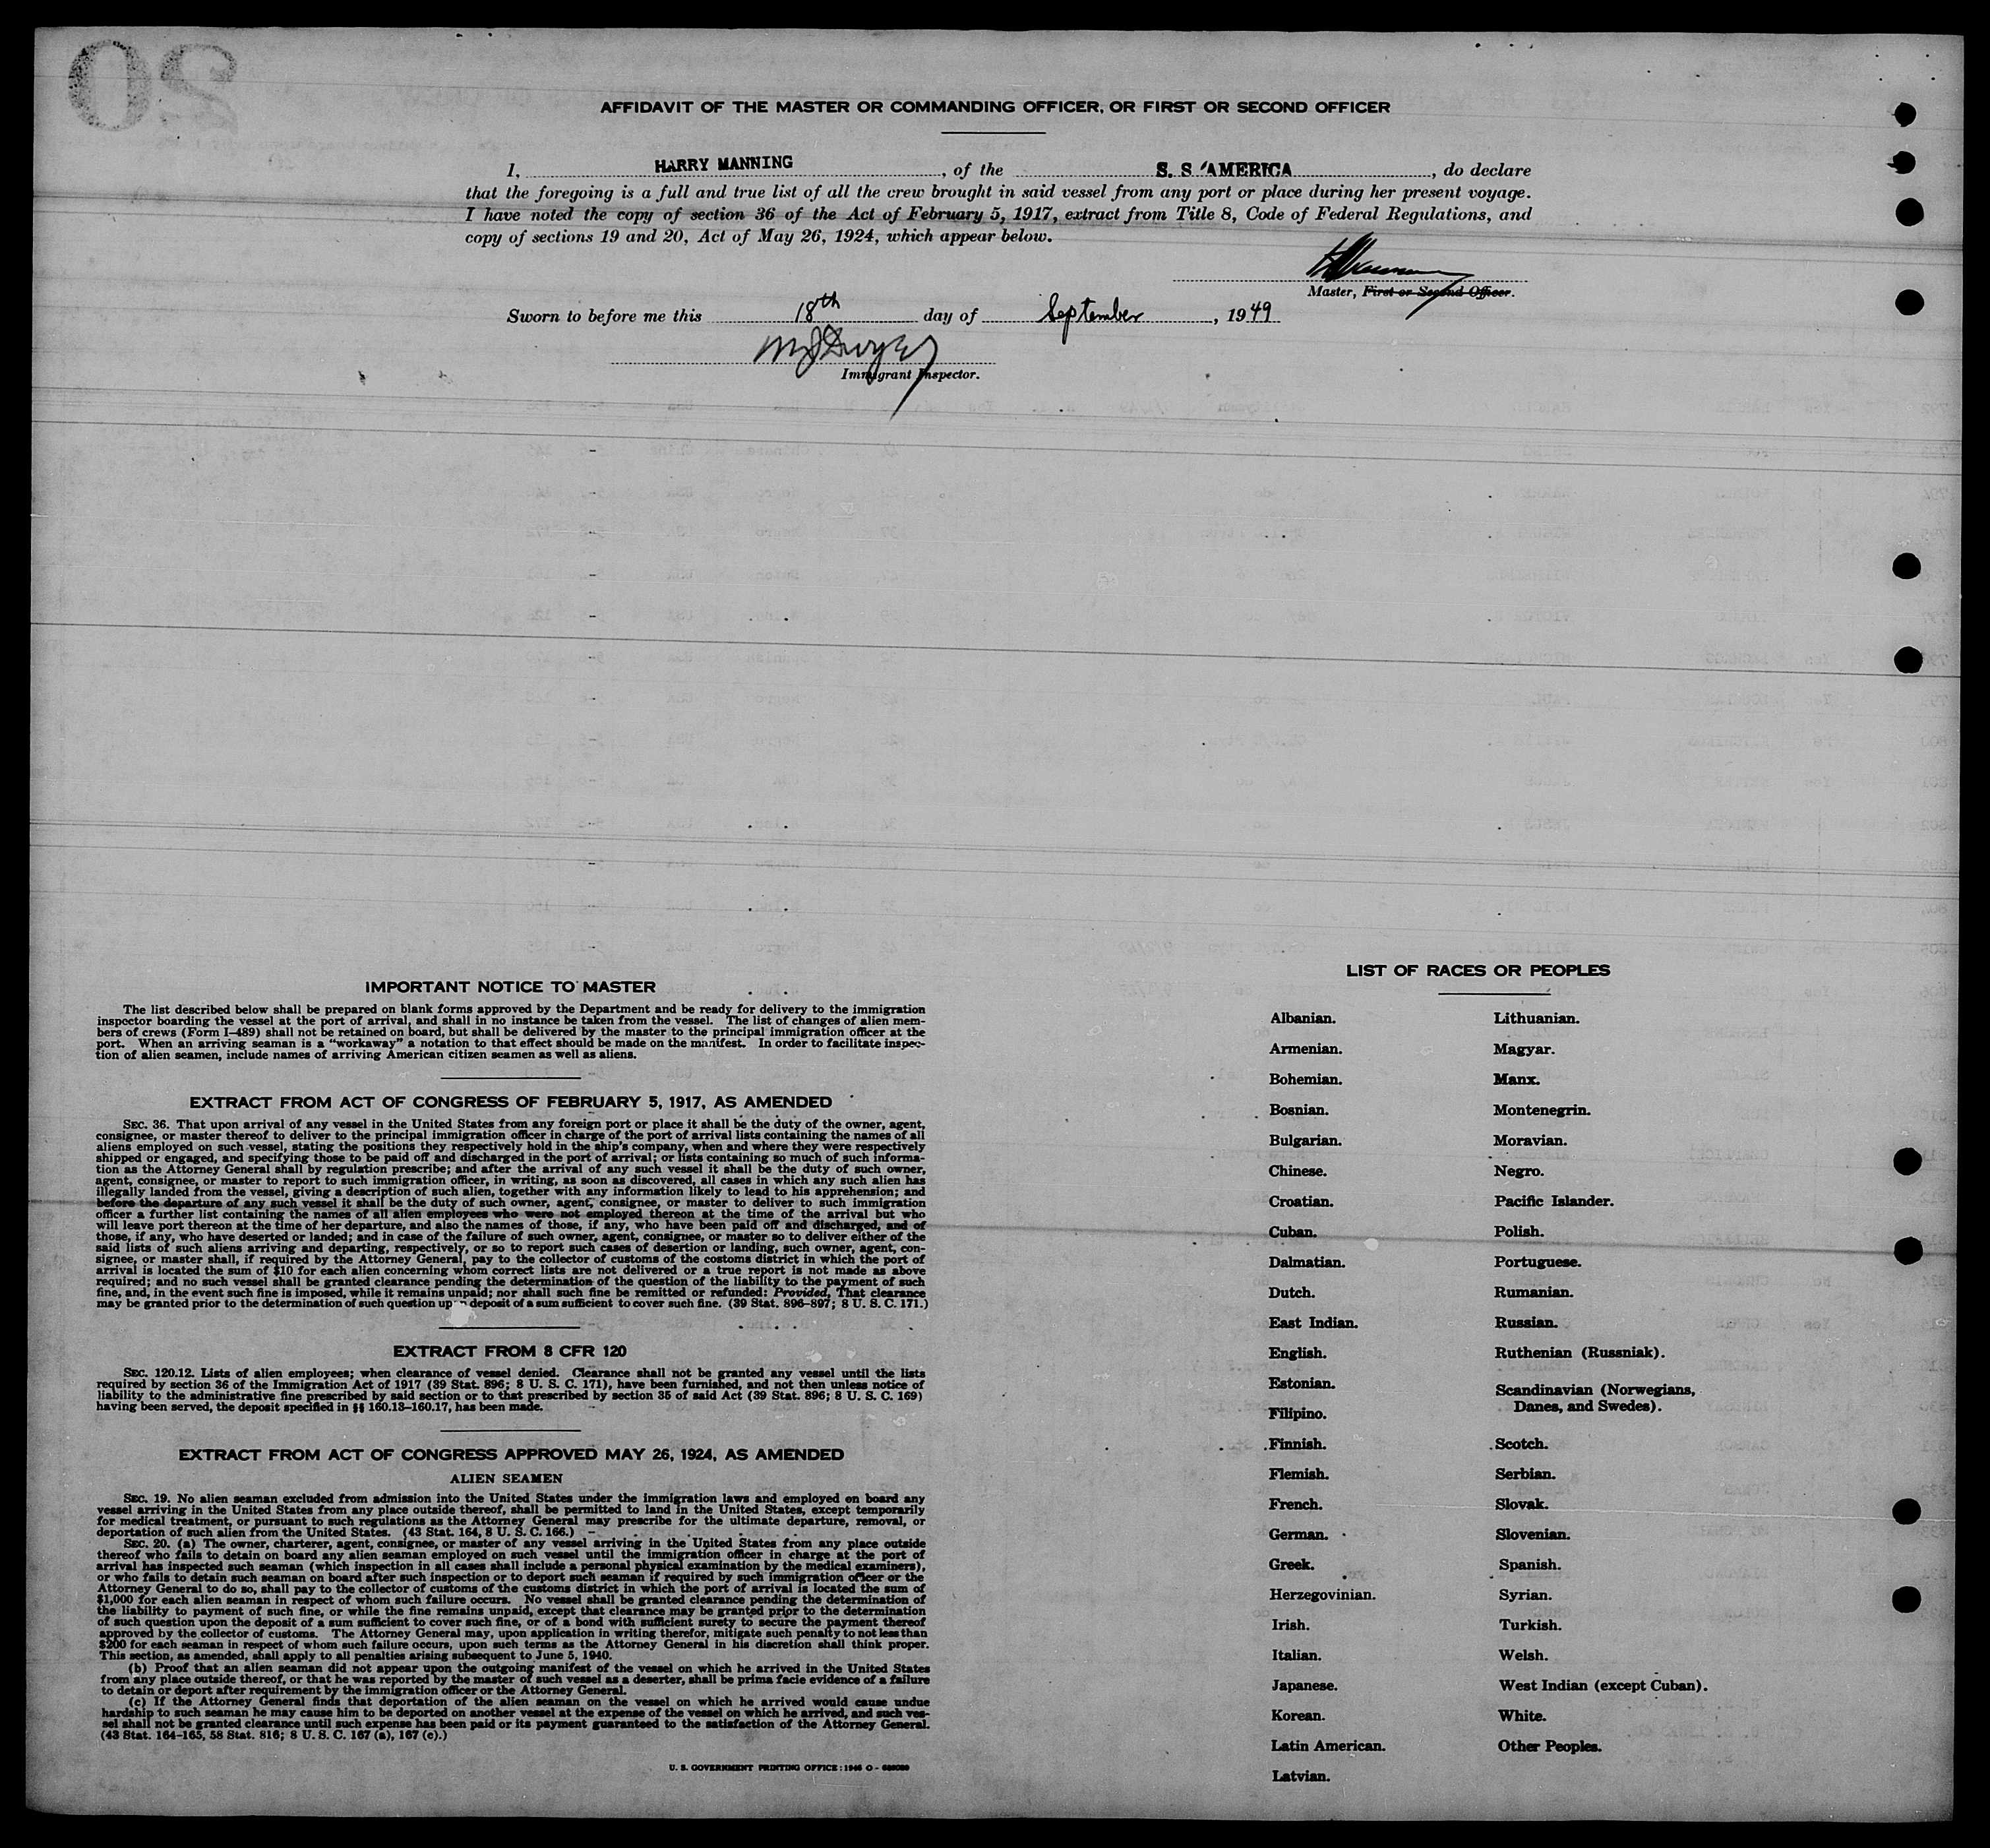 20
AFFIDAVIT OF THE MASTER OR COMMANDING OFFICER, OR FIRST OR SECOND OFFICER
I, HARRY MANNING, of the S. S. AMERICA, do declare
that the foregoing is a full and true list of all the crew brought in said vessel from any port or place during her present voyage.
I have noted the copy of section 36 of the Act of February 5, 1917, extract from Title 8, Code of Federal Regulations, and
copy of sections 19 and 20, Act of May 26, 1924, which appear below.
Master, First or Second Officer.
Sworn to before me this 18th day of September, 1949
Immigrant Inspector.
IMPORTANT NOTICE TO MASTER
The list described below shall be prepared on blank forms approved by the Department and be ready for delivery to the immigration
inspector boarding the vessel at the port of arrival, and shall in no instance be taken from the vessel. The list of changes of alien mem-
bers of crews (Form I–489) shall not be retained on board, but shall be delivered by the master to the principal immigration officer at the
port. When an arriving seaman is a “workaway” a notation to that effect should be made on the manifest. In order to facilitate inspec-
tion of alien seamen, include names of arriving American citizen seamen as well as aliens.
EXTRACT FROM ACT OF CONGRESS OF FEBRUARY 5, 1917, AS AMENDED
SEC. 36. That upon arrival of any vessel in the United States from any foreign port or place it shall be the duty of the owner, agent,
consignee, or master thereof to deliver to the principal immigration officer in charge of the port of arrival lists containing the names of all
aliens employed on such vessel, stating the positions they respectively hold in the ship's company, when and where they were respectively
shipped or engaged, and specifying those to be paid off and discharged in the port of arrival; or lists containing so much of such informa-
tion as the Attorney General shall by regulation prescribe; and after the arrival of any such vessel it shall be the duty of such owner,
agent, consignee, or master to report to such immigration officer, in writing, as soon as discovered, all cases in which any such alien has
illegally landed from the vessel, giving a description of such alien, together with any information likely to lead to his apprehension; and
before the departure of any such vessel it shall be the duty of such owner, agent, consignee, or master to deliver to such immigration
officer a further list containing the names of all alien employees who were not employed thereon at the time of the arrival but who
will leave port thereon at the time of her departure, and also the names of those, if any, who have been paid off and discharged, and of
those, if any, who have deserted or landed; and in case of the failure of such owner, agent, consignee, or master so to deliver either of the
said lists of such aliens arriving and departing, respectively, or so to report such cases of desertion or landing, such owner, agent, con-
signee, or master shall, if required by the Attorney General, pay to the collector of customs of the costoms district in which the port of
arrival is located the sum of $10 for each alien concerning whom correct lists are not delivered or a true report is not made as above
required; and no such vessel shall be granted clearance pending the determination of the question of the liability to the payment of such
fine, and, in the event such fine is imposed, while it remains unpaid; nor shall such fine be remitted or refunded: Provided, That clearance
may be granted prior to the determination of such question upon deposit of a sum sufficient to cover such fine. (39 Stat. 896–897; 8 U. S. C. 171.)
EXTRACT FROM 8 CFR 120
SEC. 120.12. Lists of alien employees; when clearance of vessel denied. Clearance shall not be granted any vessel until the lists
required by section 36 of the Immigration Act of 1917 (39 Stat. 896; 8 U. S. C. 171), have been furnished, and not then unless notice of
liability to the administrative fine prescribed by said section or to that prescribed by section 35 of said Act (39 Stat. 896; 8 U. S. C. 169)
having been served, the deposit specified in §§ 160.13–160.17, has been made.
EXTRACT FROM ACT OF CONGRESS APPROVED MAY 26, 1924, AS AMENDED
ALIEN SEAMEN
SEC. 19. No alien seaman excluded from admission into the United States under the immigration laws and employed on board any
vessel arriving in the United States from any place outside thereof, shall be permitted to land in the United States, except temporarily
for medical treatment, or pursuant to such regulations as the Attorney General may prescribe for the ultimate departure, removal, or
deportation of such alien from the United States. (43 Stat. 164, 8 U. S. C. 166.)
SEC. 20. (a) The owner, charterer, agent, consignee, or master of any vessel arriving in the United States from any place outside
thereof who fails to detain on board any alien seaman employed on such vessel until the immigration officer in charge at the port of
arrival has inspected such seaman (which inspection in all cases shall include a personal physical examination by the medical examiners),
or who fails to detain such seaman on board after such inspection or to deport such seaman if required by such immigration officer or the
Attorney General to do so, shall pay to the collector of customs of the customs district in which the port of arrival is located the sum of
$1,000 for each alien seaman in respect of whom such failure occurs. No vessel shall be granted clearance pending the determination of
the liability to payment of such fine, or while the fine remains unpaid, except that clearance may be granted prior to the determination
of such question upon the deposit of a sum sufficient to cover such fine, or of a bond with sufficient surety to secure the payment thereof
approved by the collector of customs. The Attorney General may, upon application in writing therefor, mitigate such penalty to not less than
$200 for each seaman in respect of whom such failure occurs, upon such terms as the Attorney General in his discretion shall think proper.
This section, as amended, shall apply to all penalties arising subsequent to June 5, 1940.
(b) Proof that an alien seaman did not appear upon the outgoing manifest of the vessel on which he arrived in the United States
from any place outside thereof, or that he was reported by the master of such vessel as a deserter, shall be prima facie evidence of a failure
to detain or deport after requirement by the immigration officer or the Attorney General.
(c) If the Attorney General finds that deportation of the alien seaman on the vessel on which he arrived would cause undue
hardship to such seaman he may cause him to be deported on another vessel at the expense of the vessel on which he arrived, and such ves-
sel shall not be granted clearance until such expense has been paid or its payment guaranteed to the satisfaction of the Attorney General.
(43 Stat. 164–165, 58 Stat. 816; 8 U. S. C. 167 (a), 167 (c).)
U. S. GOVERNMENT PRINTING OFFICE: 1946 O -
LIST OF RACES OR PEOPLES
Albanian.
Armenian.
Bohemian.
Bosnian.
Bulgarian.
Chinese.
Croatian.
Cuban.
Dalmatian.
Dutch.
East Indian.
English.
Estonian.
Filipino.
Finnish.
Flemish.
French.
German.
Greek.
Herzegovinian.
Irish.
Italian.
Japanese.
Korean.
Latin American.
Latvian.
Lithuanian.
Magyar.
Manx.
Montenegrin.
Moravian.
Negro.
Pacific Islander.
Polish.
Portuguese.
Rumanian.
Russian.
Ruthenian (Russniak).
Scandinavian (Norwegians,
Danes, and Swedes).
Scotch.
Serbian.
Slovak.
Slovenian.
Spanish.
Syrian.
Turkish.
Welsh.
West Indian (except Cuban).
White.
Other Peoples.